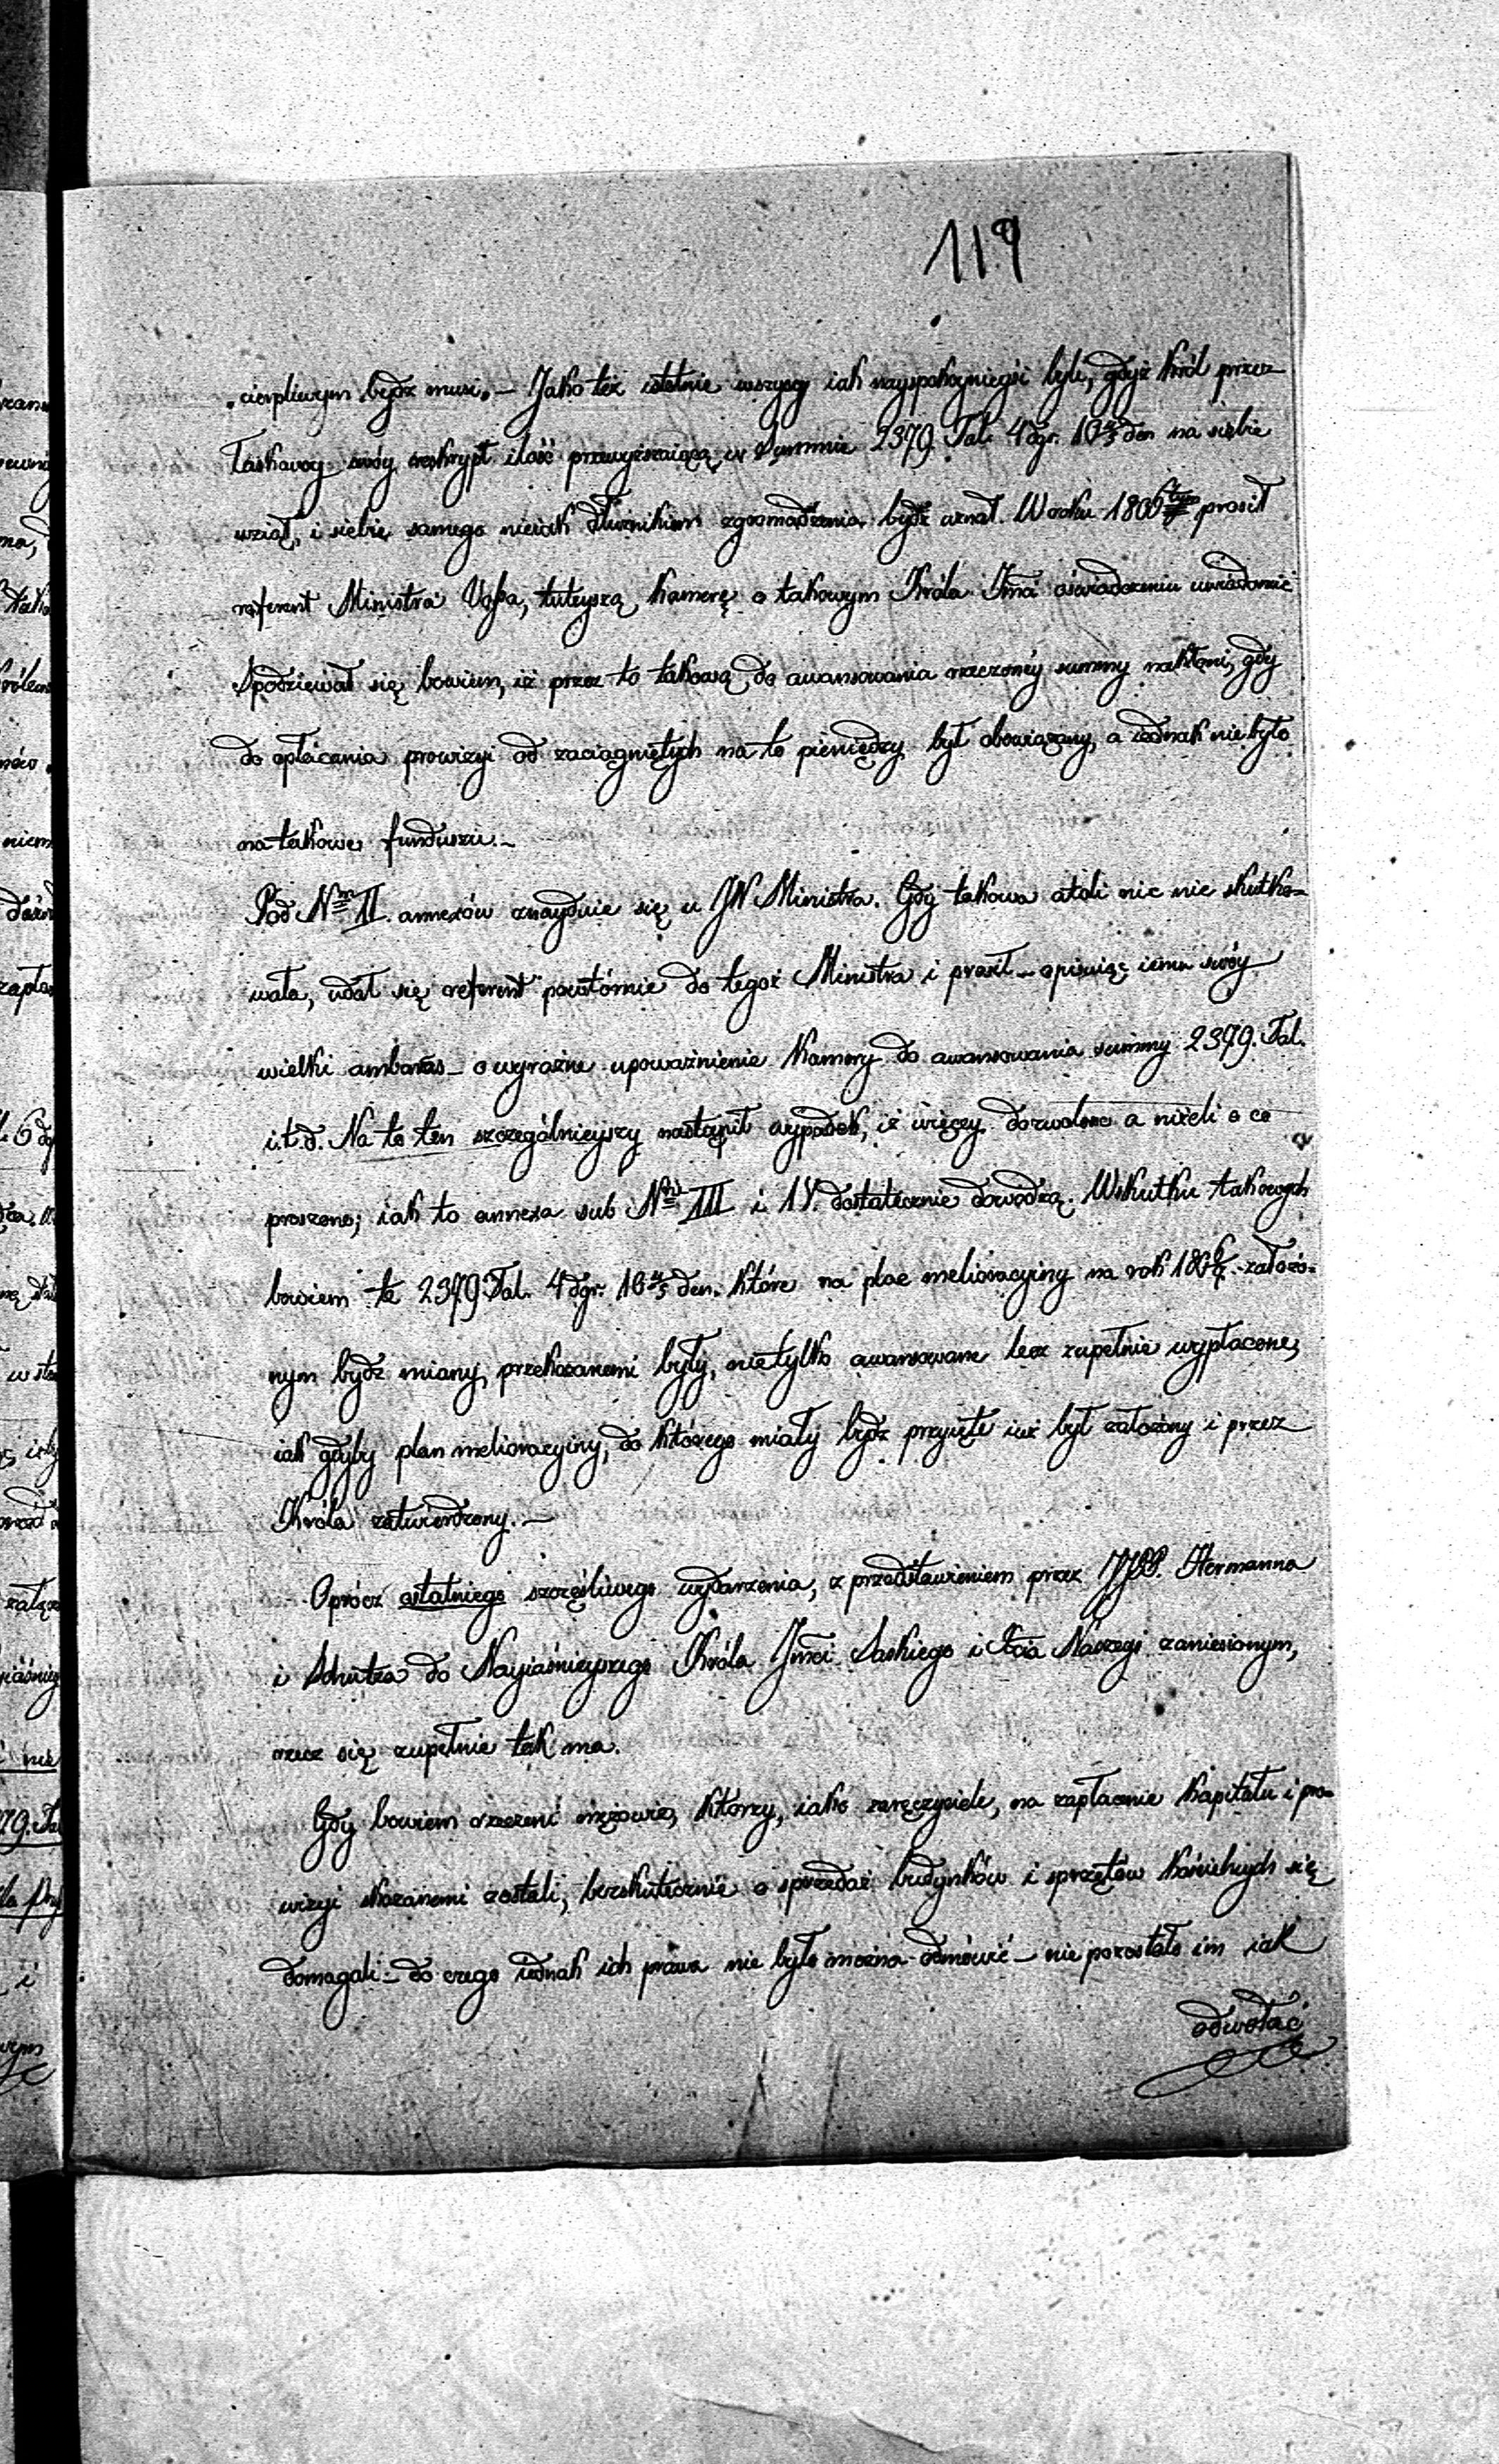 119
„cierpliwym bydź musi„ — Jako też istotnie wszyscy iak nayspokoynieysi byli, gdyż Król przez
Łaskawy swóy reskrypt ilość przewyższaiącą w Summie 2379 Tal. 4 dgr. 10⅘ den na siebie
wziął, i siebie samego nieiak dłużnikiem zgromadzenia bydź uznał. W roku 1806tym prosił
referent Ministra Vossa, tuteyszą Kamerę o takowym Króla Jmci oświadczeniu uwiadomić
Spodziewał się bowiem, iż przez to takową do awansowania rzeczonéy summy nakłoni, gdy
do opłacania prowizyi od zaciągniętych na to pieniędzy był obowiązany, a iednak nie było
na takowe funduszu. —
Pod Nro II. annexów znayduie się u JW Ministra. Gdy takowa atoli nic nie skutko=
wała, udał się referent powtórnie do tegoż Ministra i prosił — opisuiąc iemu swóy
wielki ambaras — o wyraźne upoważnienie Kamery do awansowania summy 2379. Tal.
i.t.d. Na to ten szczególnieyszy nastąpił wypadek, iż więcey dozwolono a niżeli o co
proszono; iak to annexa sub Nris III i IV. dostatecznie dowodzą. W skutku takowych
bowiem te 2379 Tal. 4 dgr. 10⅘ den. które na plac melioracyiny na rok 1806/7. założo=
nym bydź miany, przekazanemi były, nie tylko awansowane lecz zupełnie wypłacone,
iak gdyby plan melioracyiny, do którego miały bydź przyięte iuż był założony i przez
Króla zatwierdzony. —
Oprócz ostatniego szczęśliwego wydarzenia, z przedstawieniem przez JJPP. Hermanna
i Schultza do Nayiaśnieyszego Króla Jmci Saskiego i Xcia Naszego zaniesionym,
rzecz się zupełnie tak ma.
Gdy bowiem rzeczeni mężowie, którzy, iako zaręczyciele, na zapłacenie Kapitału i pro=
wizyi skazanemi zostali, bezskutecznie o sprzedaż budynków i sprzętów Kościelnych się
domagali — do czego iednak ich prawa nie było można odmówić — nie pozostało im iak
odwołać